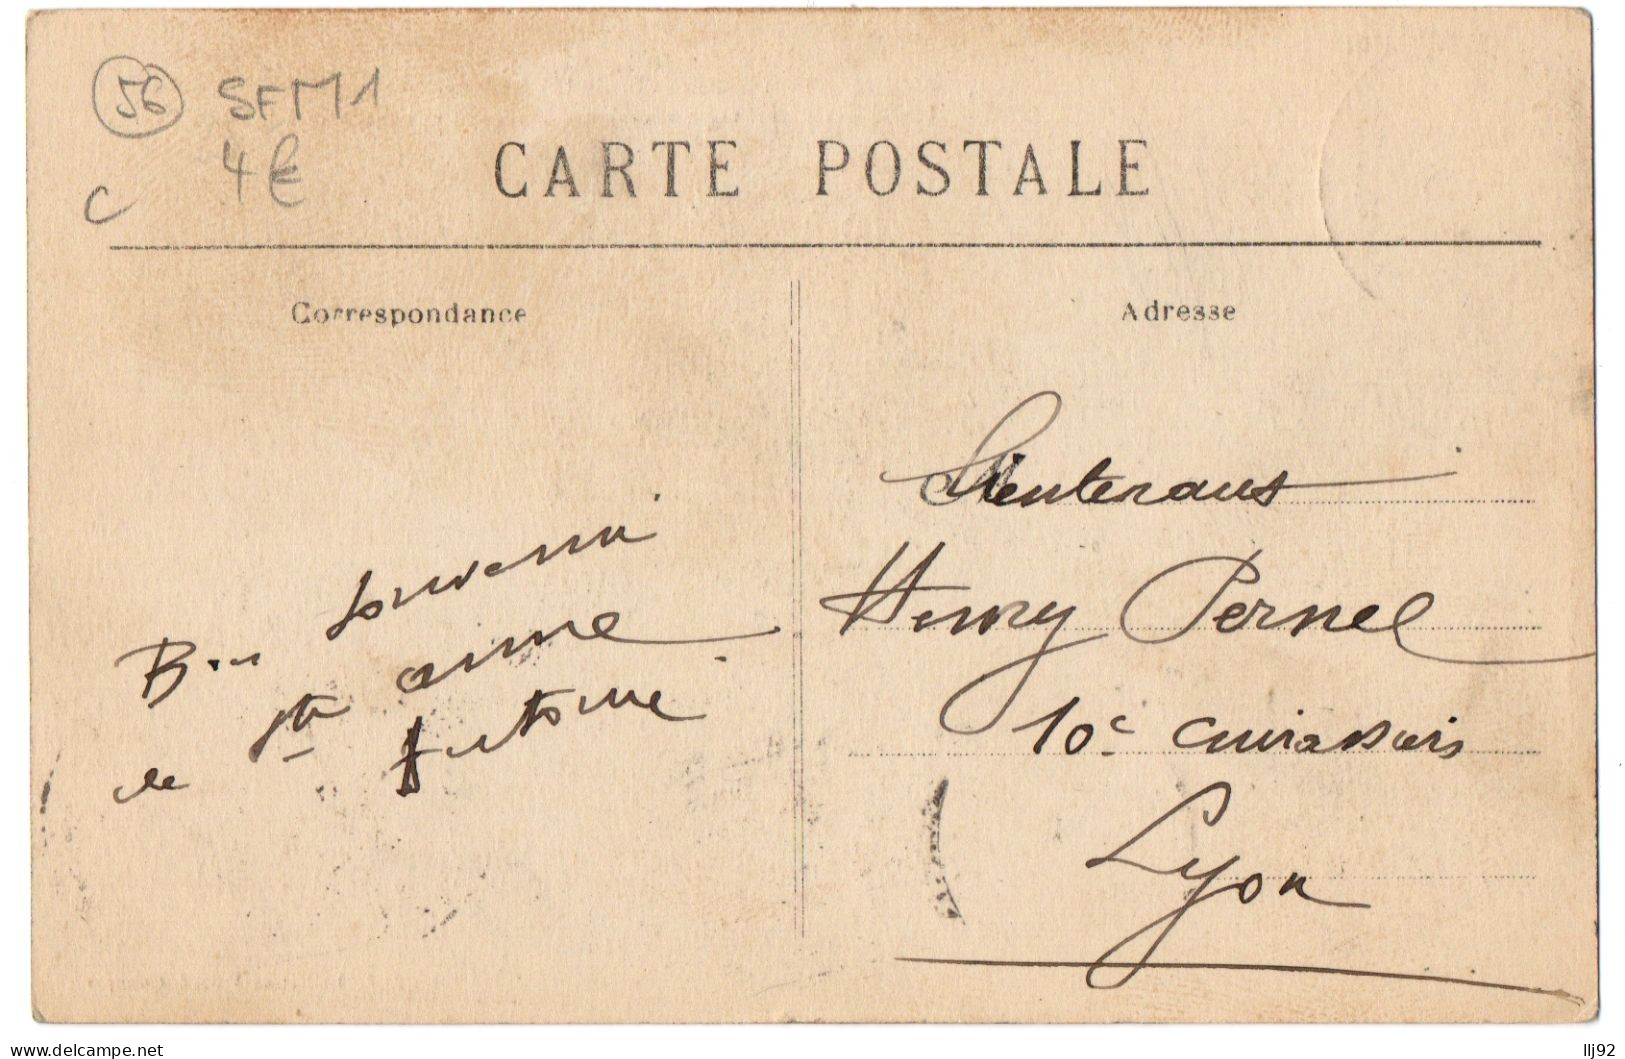 56 SFM1
4€
c
CARTE POSTALE
Correspondance
Adresse
Bon souvenir
de Ste anne
Antoine
Lieutenant
Henry Pernel
10e Cuirassiers
Lyon
www.delcampe.net
llj92